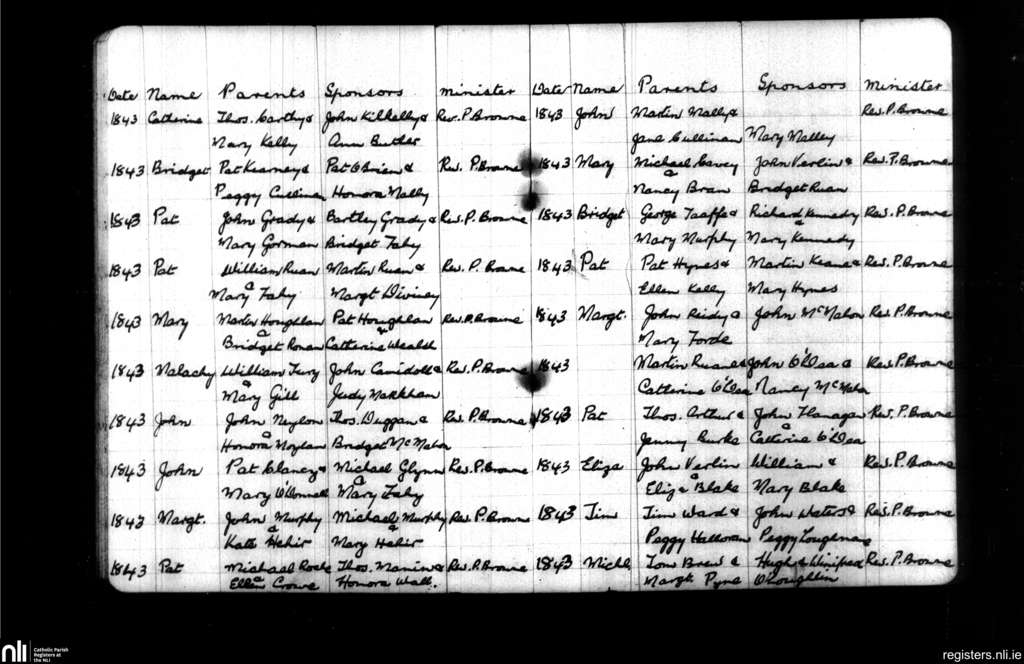 Date Name Parents Sponsors Minister
1843 Catherine Thos. Carthy & John Kilkelly & Rev. P. Browne
Mary Kelly Ann Butler
1843 Bridget Pat Kearney & Pat O'Brien & Rev. P. Browne
Peggy Cullinan Honora Mally
1843 Pat John Grady & Bartley Grady & Rev. P. Browne
Mary Gorman Bridget Fahy
1843 Pat William Ruan Martin Ruan & Rev. P. Browne
& Mary Fahy Margt Diviney
1843 Mary Martin Houghlan Pat Houghlan Rev. P. Browne
& Bridget Ronan & Catherine Wealsh
1843 Malachy William Fury John & Rev. P. Browne
& Mary Gill Judy Markham
1843 John John Neylon Thos. Duggan & Rev. P. Browne
& Honora Moylan Bridget McMahon
1843 John Pat Clancy & Michael Glynn Rev. P. Browne
Mary O'Donnell & Mary Fahy
1843 Margt. John Murphy Michael Murphy Rev. P. Browne
& Kate Hehir & Mary Hehir
1843 Pat Michael Roche Thos. & Rev. P. Browne
& Ellen Crowe Honora Wall.
Date Name Parents Sponsors Minister
1843 John Martin Mally & Rev. P. Browne
Jane Cullinan Mary Malley
1843 Mary Michael Carey John Verlin & Rev. P. Browne
& Nancy Bran Bridget Ruan
1843 Bridget George Taaffe & Richard Kennedy Rev. P. Browne
Mary Murphy & Mary Kennedy
1843 Pat Pat Hynes & Martin Keane & Rev. P. Browne
Ellen Kelly Mary Hynes
1843 Margt. John Reidy & John McMahon Rev. P. Browne
Mary Forde
1843 Martin Ruane & John O'Dea & Rev. P. Browne
Catherine O'Dea Nancy McMahon
1843 Pat Thos. Arthur & John Flanagan Rev. P. Browne
Jenny Burke & Catherine O'Dea
1843 Eliza John Verlin William & Rev. P. Browne
& Eliza Blake Mary Blake
1843 Tim Tim Ward & John Waters & Rev. P. Browne
Peggy Halloran Peggy Loughnane
1843 Michl Tom Brew & Hugh & Winifred Rev. P. Browne
Margt Pyne O'Loughlin
nli Catholic Parish
Registers at
the NLI
registers.nli.ie